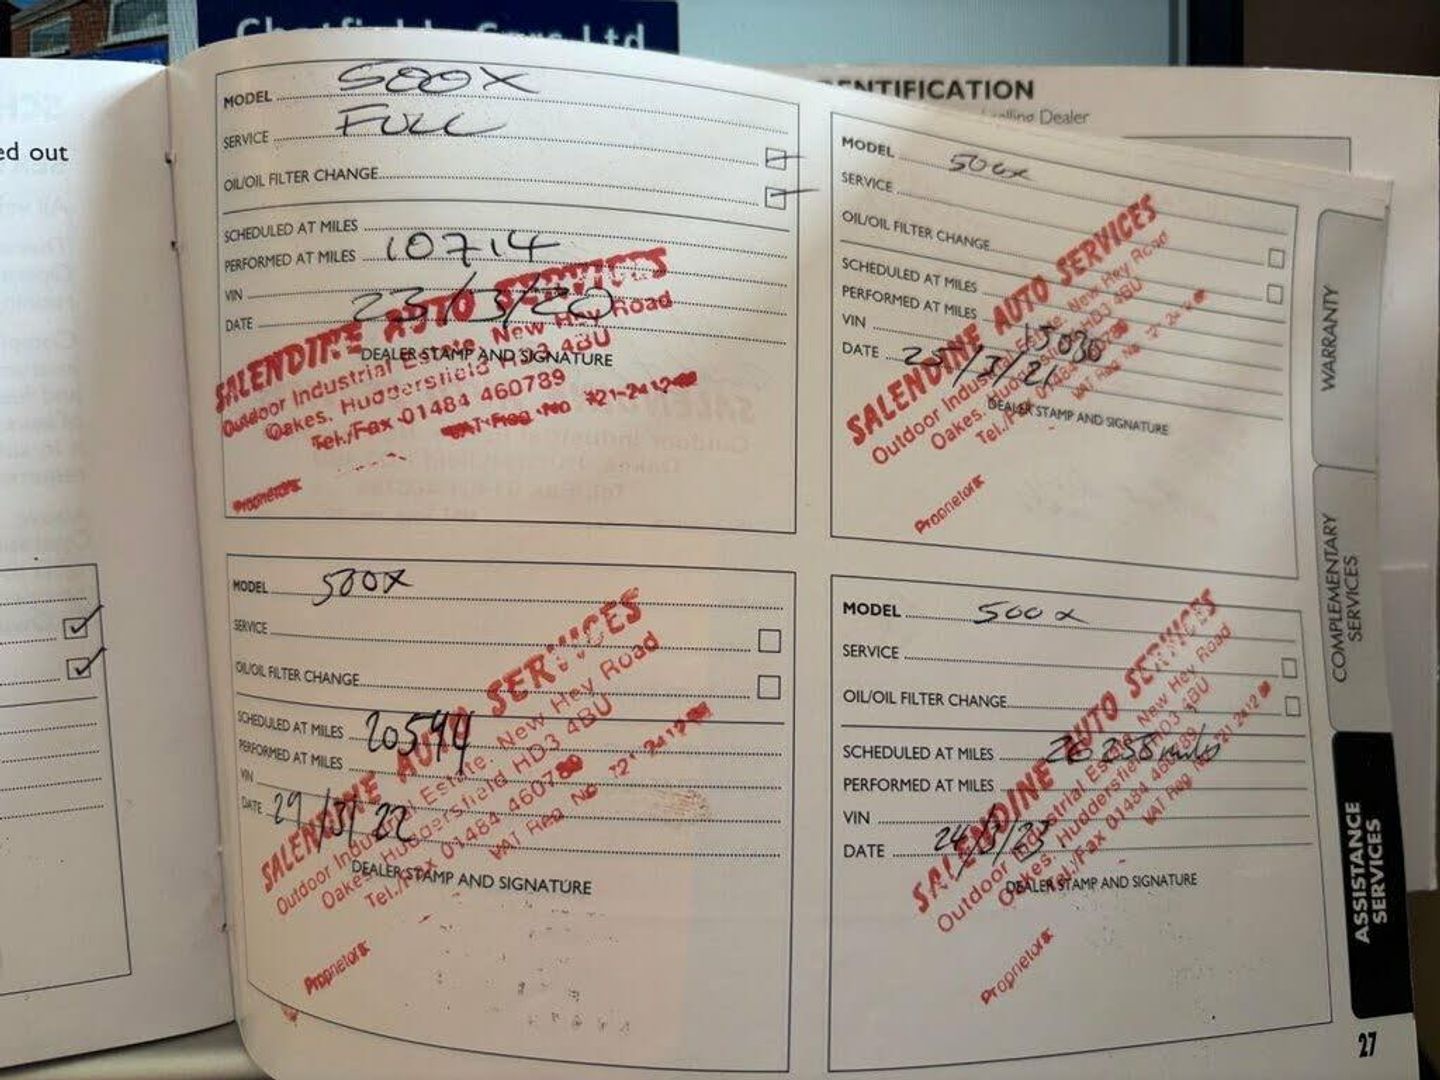 Chatfields Cars Ltd
ed out
MODEL 500X
SERVICE FULL
OIL/OIL FILTER CHANGE
SCHEDULED AT MILES
PERFORMED AT MILES 10714
VIN
DATE 23/3/20
DEALER STAMP AND SIGNATURE
SALENDINE AUTO SERVICES
Outdoor Industrial Estate, New Hey Road
Oakes, Huddersfield HD3 4BU
Tel./Fax 01484 460789
VAT Reg No 721 2412
Proprietors
ENTIFICATION
Selling Dealer
MODEL 500x
SERVICE
OIL/OIL FILTER CHANGE
SCHEDULED AT MILES
PERFORMED AT MILES
VIN 15030
DATE 25/3/21
DEALER STAMP AND SIGNATURE
SALENDINE AUTO SERVICES
Outdoor Industrial Estate, New Hey Road
Oakes, Huddersfield HD3 4BU
Tel./Fax 01484 460789
VAT Reg No 721 2412
Proprietors
MODEL 500X
SERVICE
OIL/OIL FILTER CHANGE
SCHEDULED AT MILES 20594
PERFORMED AT MILES
VIN
DATE 29/3/22
DEALER STAMP AND SIGNATURE
SALENDINE AUTO SERVICES
Outdoor Industrial Estate, New Hey Road
Oakes, Huddersfield HD3 4BU
Tel./Fax 01484 460789
VAT Reg No 721 2412
Proprietors
MODEL 500x
SERVICE
OIL/OIL FILTER CHANGE
SCHEDULED AT MILES 26255 miles
PERFORMED AT MILES
VIN
DATE 24/3/23
DEALER STAMP AND SIGNATURE
SALENDINE AUTO SERVICES
Outdoor Industrial Estate, New Hey Road
Oakes, Huddersfield HD3 4BU
Tel./Fax 01484 460789
VAT Reg No 721 2412
Proprietors
WARRANTY
COMPLEMENTARY
SERVICES
ASSISTANCE
SERVICES
27